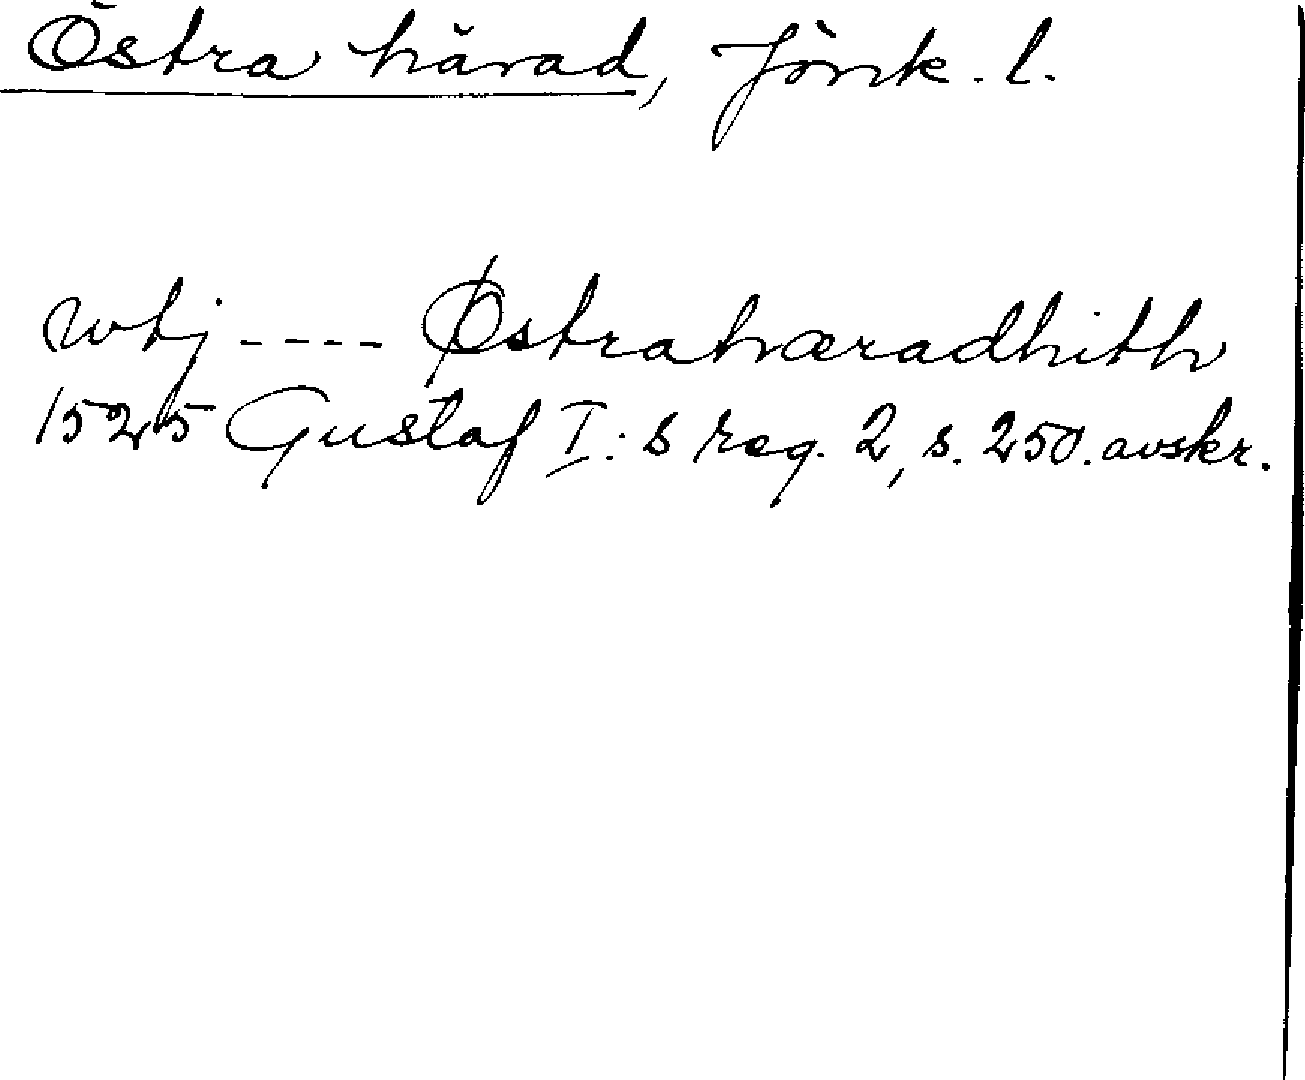 Östra härad, Jönk. l.
wtj ---- Østrahæradhith
1525 Gustaf I:s reg. 2, s. 250. avskr.